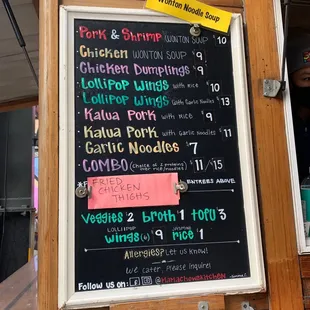 Wonton Noodle Soup
Pork & Shrimp WONTON SOUP $10
Chicken WONTON SOUP $9
Chicken Dumplings $9
Lollipop Wings with Rice $10
Lollipop Wings with Garlic Noodles $13
Kalua Pork with RICE $9
Kalua Pork with Garlic Noodles $11
Garlic Noodles $7
COMBO (choice of 2 proteins) over rice/noodles) $11/$15
FRIED CHICKEN THIGHS
ENTREES ABOVE
Veggies $2 broth $1 tofu $3
LOLLIPOP wings(6) $9 JASMINE rice $1
Allergies? Let us know!
We cater, Please Inquire!
Follow us on: